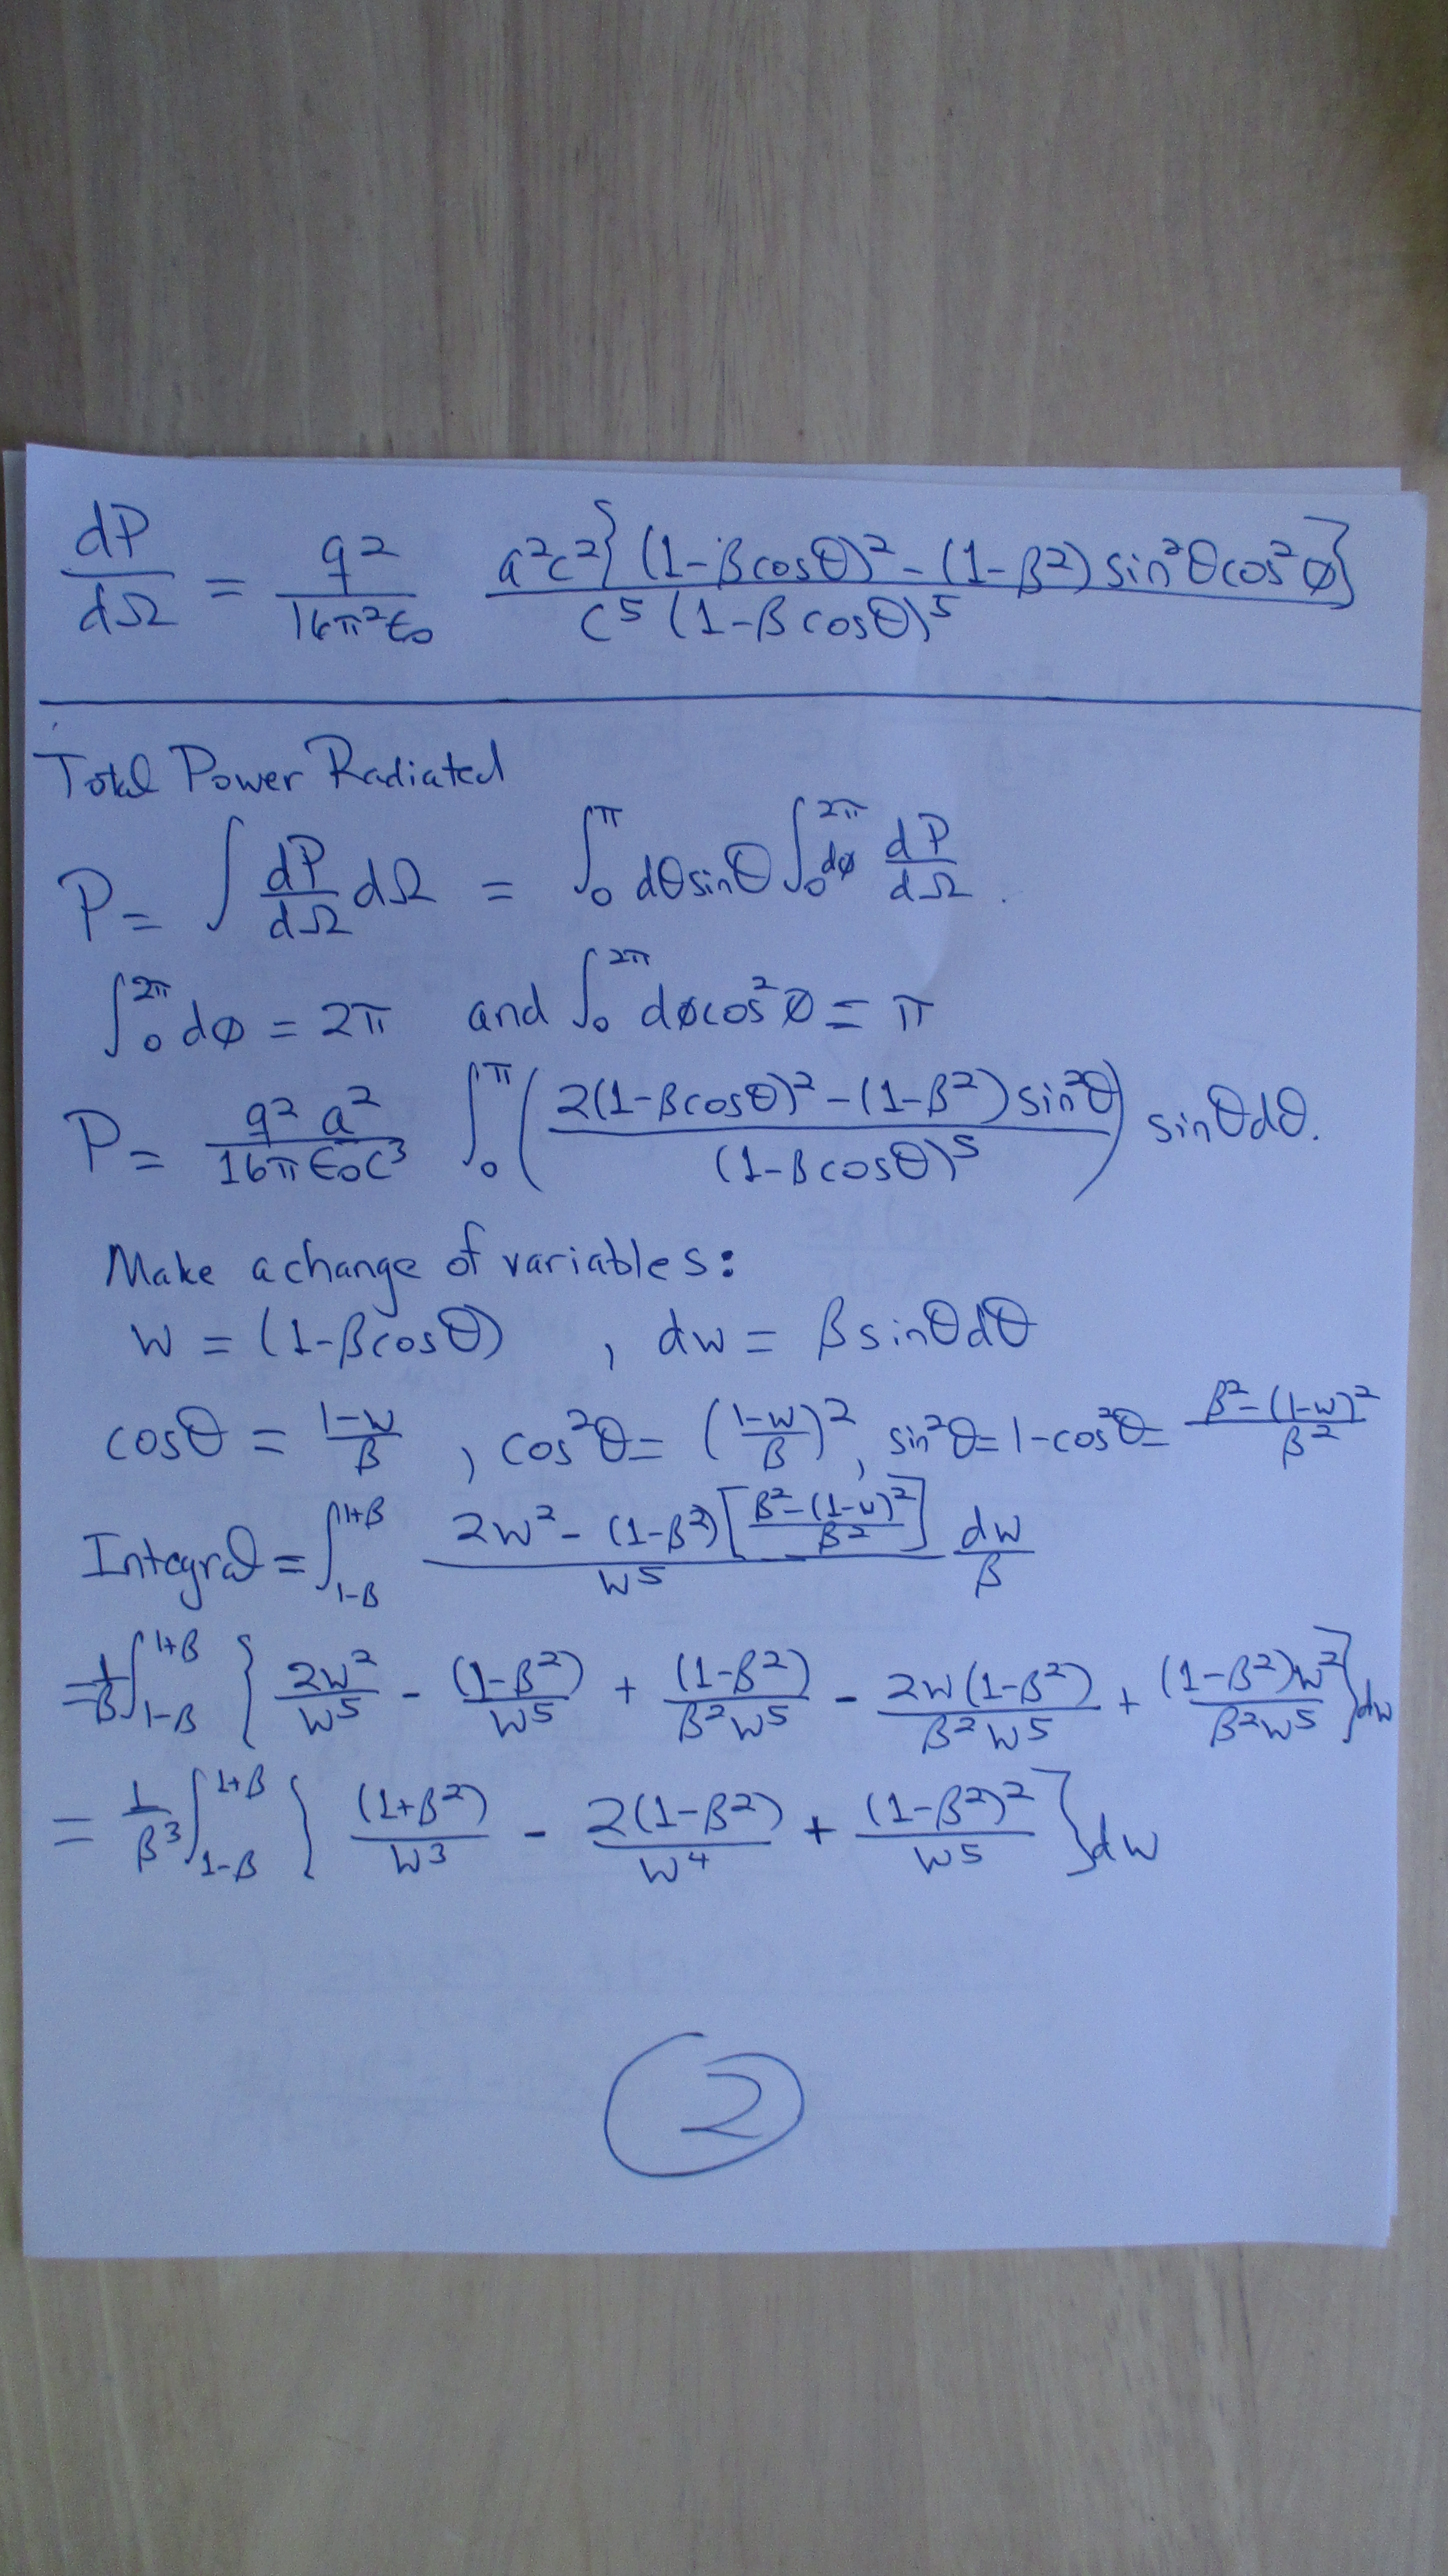 dP/dΩ = q²/16π²ε₀ a²c²{(1-βcosθ)² - (1-β²)sin²θcos²φ}/c⁵(1-βcosθ)⁵
Total Power Radiated
P = ∫ dP/dΩ dΩ = ∫₀^π dθsinθ ∫₀^2π dφ dP/dΩ.
∫₀^2π dφ = 2π and ∫₀^2π dφcos²φ = π
P = q²a²/16πε₀c³ ∫₀^π (2(1-βcosθ)² - (1-β²)sin²θ/(1-βcosθ)⁵) sinθdθ.
Make a change of variables:
w = (1-βcosθ) , dw = βsinθdθ
cosθ = 1-w/β , cos²θ = (1-w/β)², sin²θ = 1-cos²θ = β²-(1-w)²/β²
Integral = ∫_{1-β}^{1+β} 2w² - (1-β²)[β²-(1-w)²/β²]/w⁵ dw/β
= 1/β ∫_{1-β}^{1+β} {2w²/w⁵ - (1-β²)/w⁵ + (1-β²)/β²w⁵ - 2w(1-β²)/β²w⁵ + (1-β²)w²/β²w⁵} dw
= 1/β³ ∫_{1-β}^{1+β} {(1+β²)/w³ - 2(1-β²)/w⁴ + (1-β²)²/w⁵} dw
2